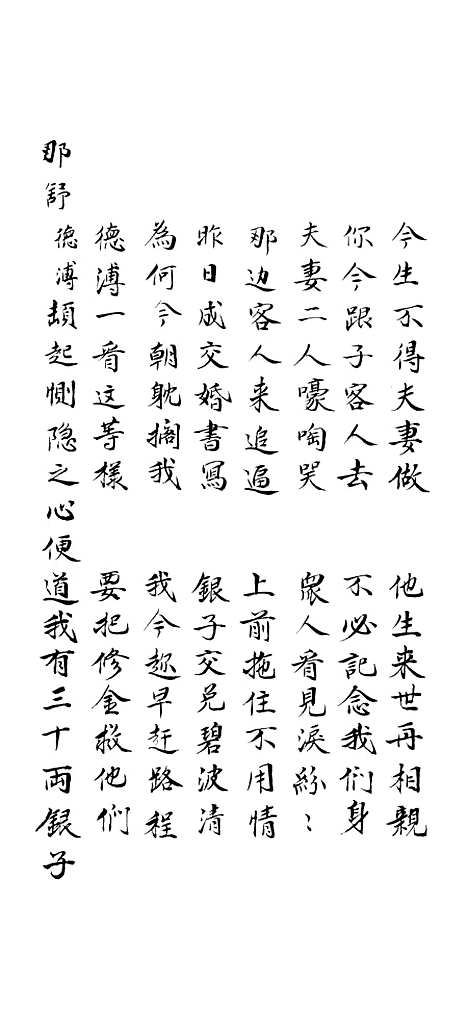 今生不得夫妻做　他生来世再相親
你今跟子客人去　不必記念我们身
夫妻二人嚎啕哭　衆人看見淚紛〻
那边客人来追逼　上前拖住不用情
昨日成交婚書寫　銀子交兑碧波清
為何今朝躭擱我　我今趂早赶路程
德溥一看这等樣　要把修金救他们
那舒德溥頓起惻隐之心便道我有三十両銀子